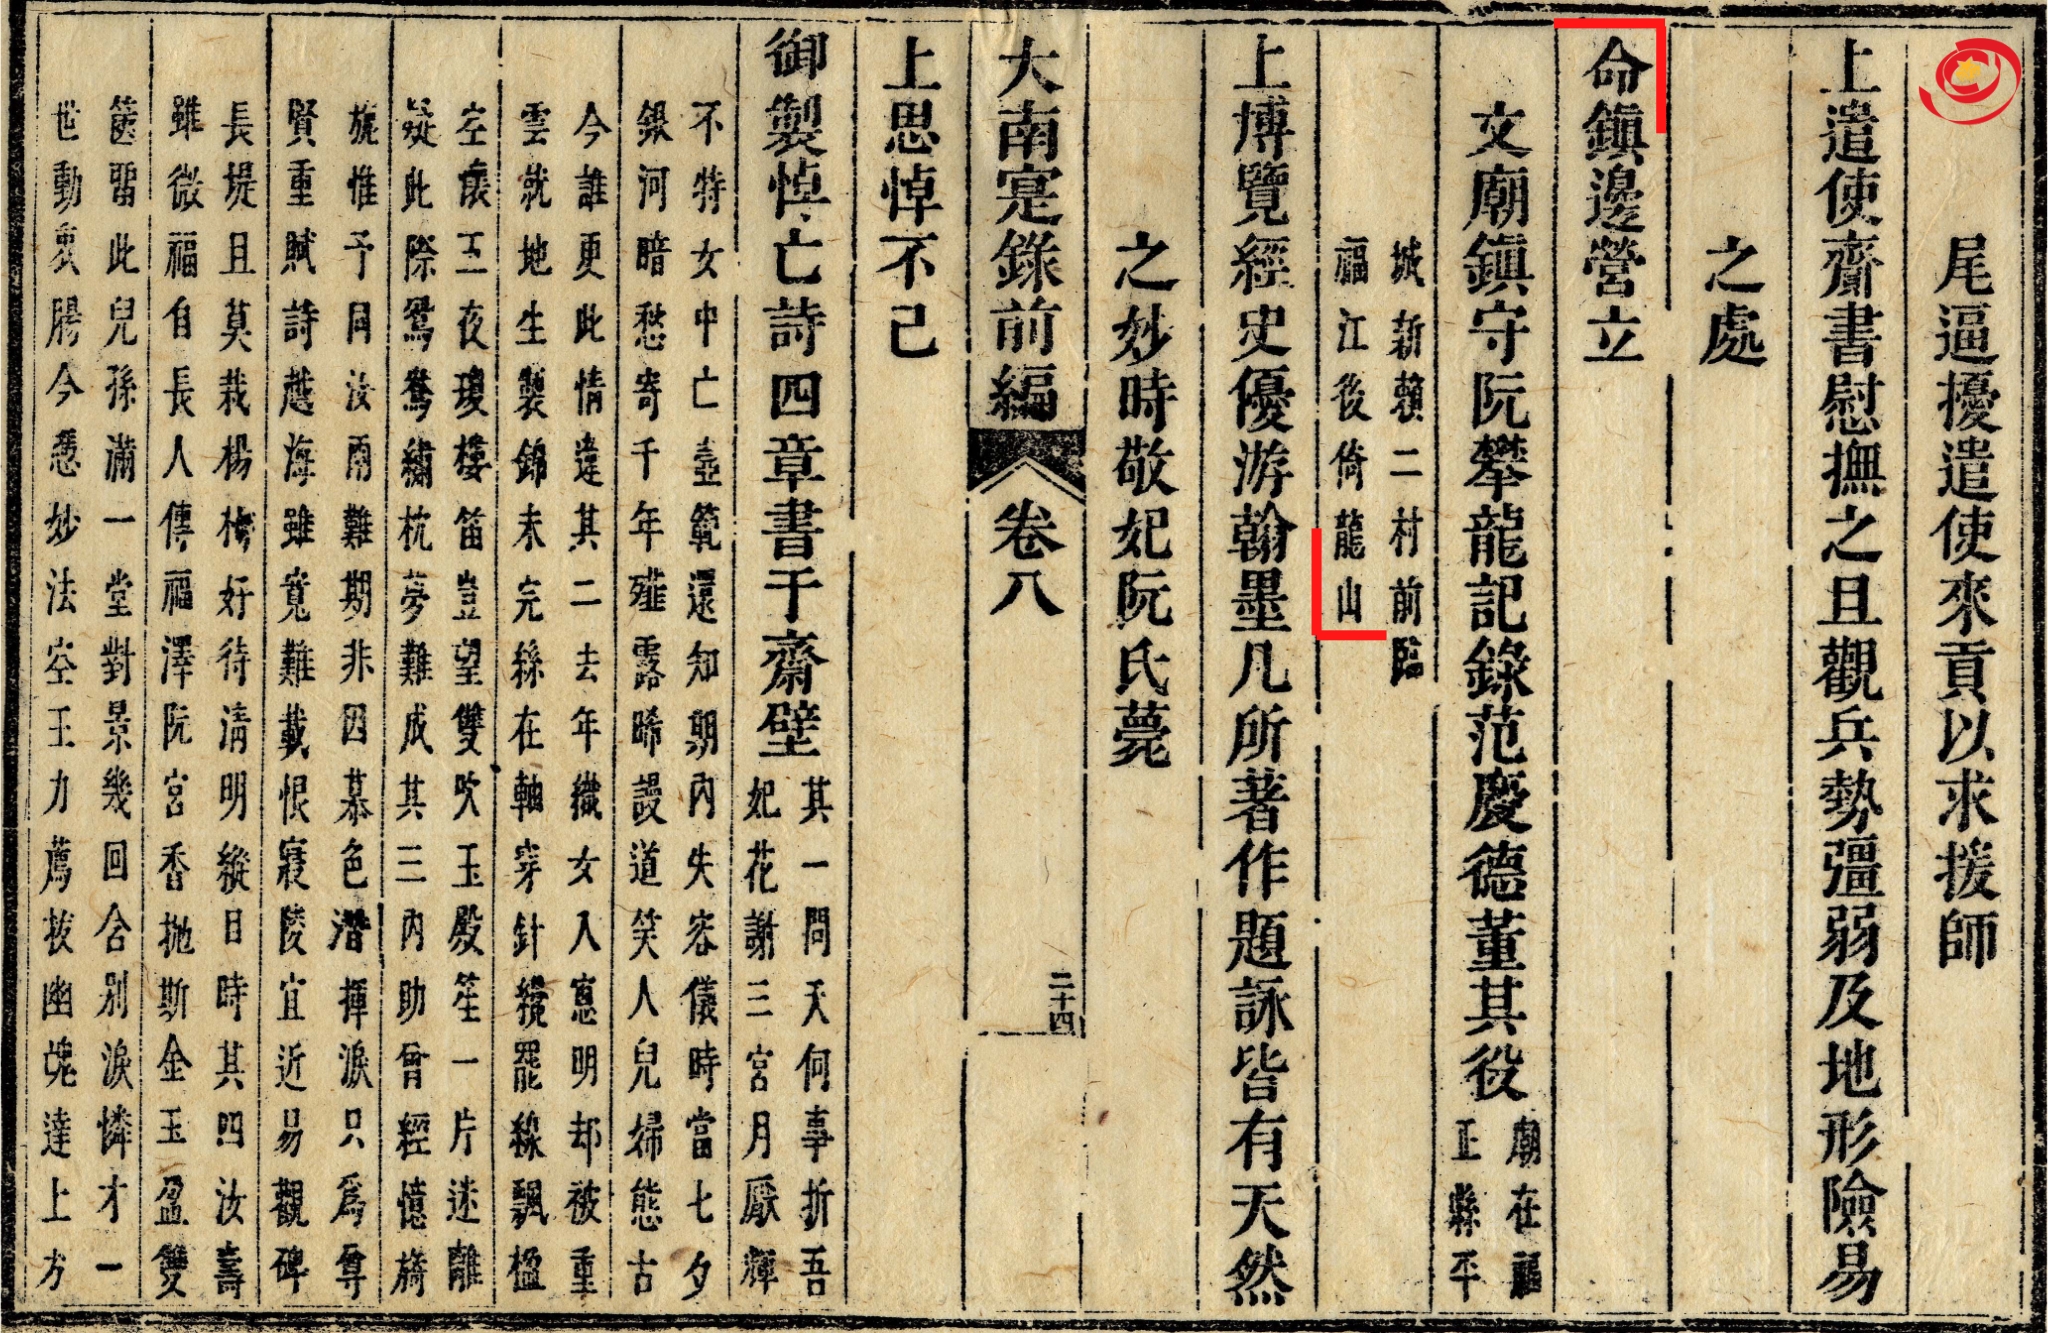 尾逼擾遣使來貢以求援師
上遣使齎書慰撫之且觀兵勢彊弱及地形險易
之處
命鎮邊營立
文廟鎮守阮攀龍記錄范慶德董其役廟在福正縣平
城新賴二村前臨福江後倚龍山
上博覽經史優游翰墨凡所著作題詠皆有天然
之妙時敬妃阮氏薨
大南寔錄前編 卷八 二十四
上思悼不已
御製悼亡詩四章書于齋壁其一問天何事折吾妃花謝三宮月厭輝
不特女中亡壼範還知期內失容儀時當七夕銀河暗愁寄千年薤露晞謾道笑人兒婦態古
今誰更此情違其二去年織女入窻明却被重雲就地生製錦未完絲在軸穿針纔罷線飄楹
空庭五夜瓊樓笛豈望雙吹玉殿笙一片迷離疑此際鴛鴦繡枕夢難成其三內助曾經憶旖
旎惟予同汝兩難期非因暮色潛揮淚只爲尊賢重賦詩越海雖寬難載恨寢陵宜近易觀碑
長堤且莫栽楊柳好待清明縱日時其四汝壽雖微福自長人傳福澤阮宮香拋斯金玉盈雙
篋留此兒孫滿一堂對景幾回含別淚憐才一世動衷腸今憑妙法空王力薦拔幽魂達上方